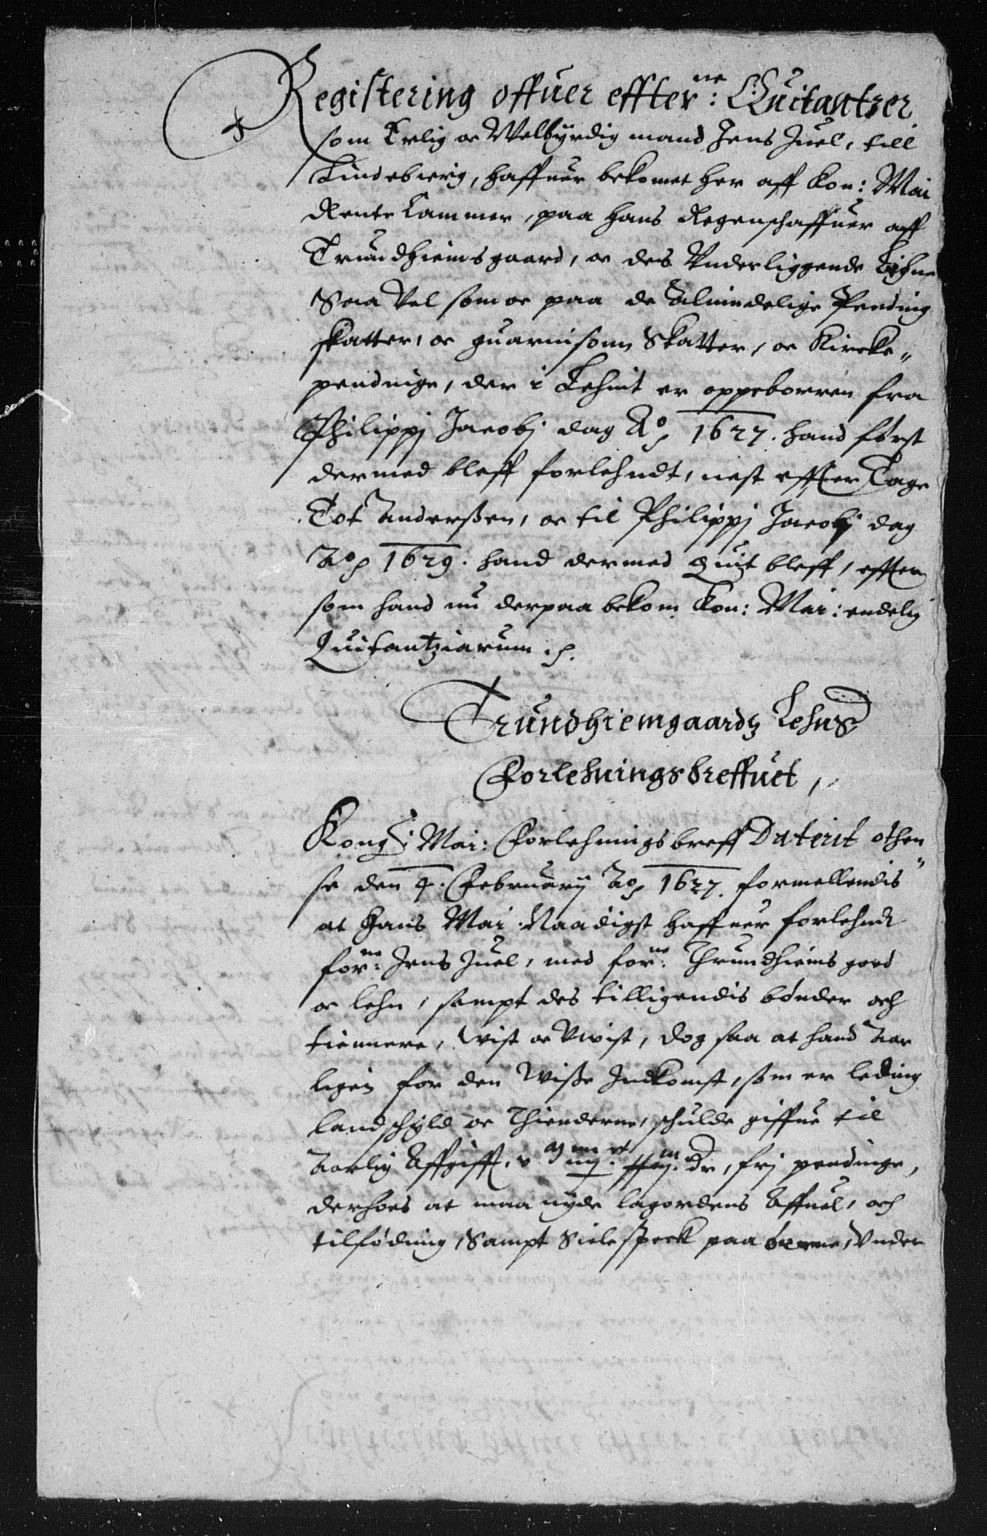 Registering offuer effter:ne Quitantzer
som Erlig oc Welbyrdig mand Jens Juel, till
Lindebierg, haffuer bekomet her aff Kon: Mai
Rente Cammer, paa hans Regenschaffuer aff
Trundhiems gaard, oc des Underliggende Lehne
Saa Vel som oc paa de Almindelige Pending
skatter, oc guarnisonn Skatter, oc Kircke„
pendinge, der i Lehnit er oppeborren fra
Philippj Jacobj dag A:o 1627. hand først
dermed bleff forlehndt, nest effter Tage
Tot Anderßen, oc til Philippj Jacobj dag
A:o 1629. hand dermed Quit bleff, effter
som hand nu derpaa bekom Kon: Mai: endelig
Quitantziarum.
Trundhiemgaardtz Lehns
Forlehningsbreffuet,
Kong: Mai: Forlehningsbreff Daterit othen
se den 4. Februarij Ao 1627. formellendis
at Hans Mai Naadigst haffuer forlehnt
for:ne Jens Juel, med for:ne Thrundhiems gord
oc lehn, sampt des tilligendis bønder och
tiennere, Wist oc Uwist, dog saa at hand Aar
ligen for den Wiße Indkomst, som er leding
landschyld oc Thienderne, schulde giffue til
Aarlig Affgifft, Dr, frj pendinge,
derhoes at maa nyde lagordens Affuel, och
tilfødning, Sampt Sielespeck paa Under